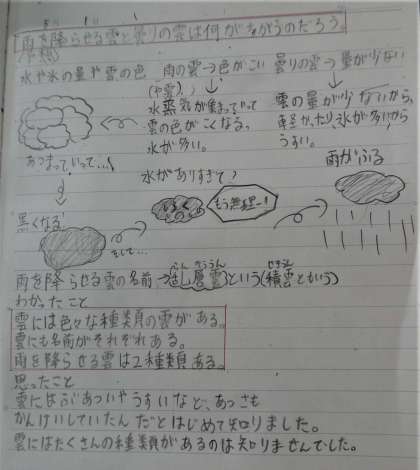 雨を降らせる雲と曇りの雲は何がちがうのだろう。
水や氷の量や雲の色
雨の雲→色がこい
曇りの雲→量が少ない
水蒸気が集まっていって
雲の色がこくなる。
水が多い。
雲の量が少ないから、
軽かったり、氷が多いから
うすい。
あつまっていって…
水がありすぎて
もう無理ー!
雨がふる
黒くなる
そして…
雨を降らせる雲の名前→乱層雲という(積雲ともいう)
わかったこと
雲には色々な種類の雲がある。
雲にも名前がそれぞれある。
雨を降らせる雲は2種類ある。
思ったこと
雲にはぶあついやうすいなど、あつさも
かんけいしていたんだとはじめて知りました。
雲にはたくさんの種類があるのは知りませんでした。